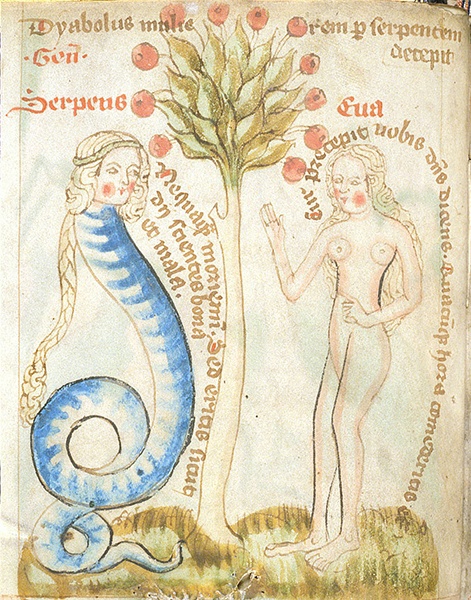 Dyabolus mulierem p serpentem
decepit
·Geñ·
Serpens
Eua
Nequaq̃ moriemĩ. Sed eritis sicut
dij scientes bonũ
et mala.
Cur precepit vobis dñs dicens.
hora comederitis